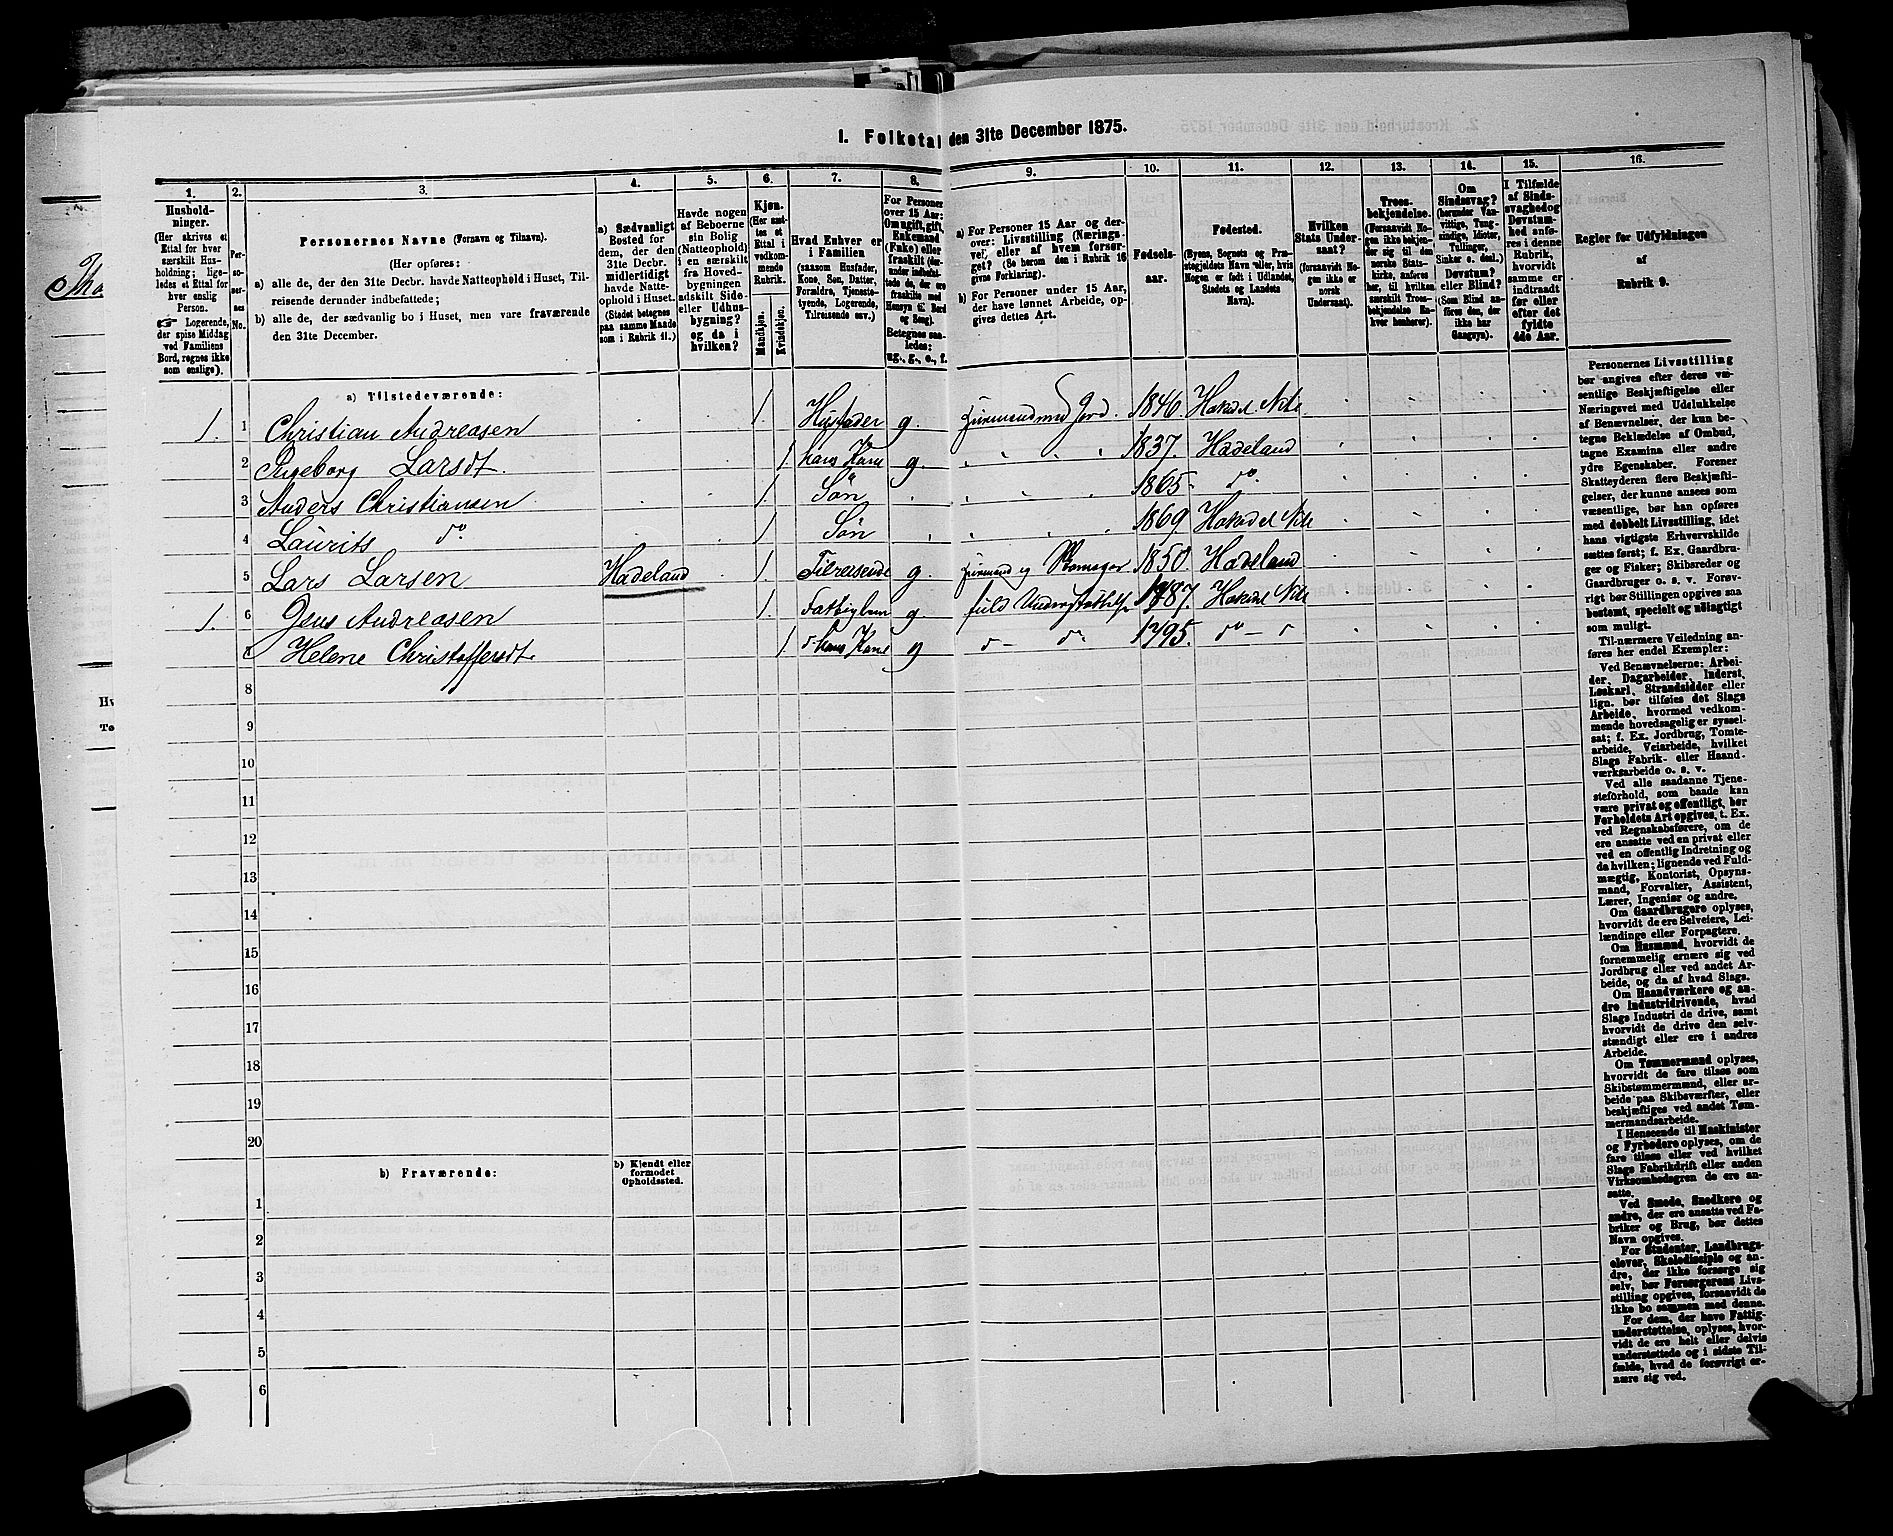 I. Folketal den 31te December 1875.
1. 2. 3. 4. 5. 6. 7. 8. 9. 10. 11. 12. 13. 14. 15. 16.
Husholdninger.
(Her skrives et Ettal for hver særskilt Husholdning; ligeledes et Ettal for hver enslig Person.
☞ Logerende, der spise Middag ved Familiens Bord, regnes ikke som enslige).
Personernes No.
Personernes Navne (Fornavn og Tilnavn).
(Her opføres:
a) alle de, der den 31te Decbr. havde Natteophold i Huset, Tilreisende derunder indbefattede;
b) alle de, der sædvanlig bo i Huset, men vare fraværende den 31te December.
a) Sædvanligt Bosted for dem, der den 31te Decbr. midlertidigt havde Natteophold i Huset. (Stedet betegnes paa samme Maade som i Rubrik 11.)
Havde nogen af Beboerne sin Bolig (Natteophold) i en særskilt fra Hovedbygningen adskilt Side- eller Udhusbygning? og da i hvilken?
Kjøn. (Her sættes et Ettal i vedkommende Rubrik.
Mandkjøn.
Kvindekjøn.
Hvad Enhver er i Familien
(saasom Husfader, Kone, Søn, Datter, Forældre, Tjenestetyende, Logerende, Tilreisende osv.)
For Personer over 15 Aar: Om ugift, gift, Enkemand (Enke) eller fraskilt (derunder indbefattede de, der ere fraskilte med Hensyn til Bord og Seng).
Betegnes saaledes: ug., g., e., f.
a) For Personer 15 Aar og derover: Livsstilling (Næringsvei, eller af hvem forsørget? (Se herom den i Rubrik 16 givne Forklaring).
b) For Personer under 15 Aar, der have lønnet Arbeide, opgives dettes Art.
Fødselsaar.
Fødested.
(Byens, Sognets og Præstegjeldets Navn eller, hvis Nogen er født i Udlandet, Stedets og Landets Navn).
Hvilken Stats Undersaat?
(forsaavidt Nogen ikke er norsk Undersaat).
Troesbekjendelse.
(Forsaavidt Nogen ikke bekjender sig til den norske Statskirke, anføres her, til hvilken særskilt Troesbekjendelse Enhver henhører).
Om Sindssvag? (herunder Vanvittige, Tungsindige, Idioter, Tullinger, Sinker o. desl.)
Døvstum? eller Blind? (Som Blind anføres den, der ikke har Gangsyn).
I Tilfælde af Sindssvaghed og Døvstumhed anføres i denne Rubrik, hvorvidt samme er indtraadt før eller efter det fyldte 4de Aar.
Regler for Udfyldningen af Rubrik 9.
a) Tilstedeværende:
1. 1 Christian Andreasen 1. Husfader g. Jord. 1846. Hakadel
2 Ingeborg Larsdt. 1 hans Kone g. 1837. Hadeland
3 Anders Christiansen 1 Søn 1865. do.
4 Laurits do 1 Søn 1869. Hakadel
5 Lars Larsen Hadeland 1. Tilreisende g. 1850. Hadeland
1. 6 Jens Andreasen 1. g. fuld 1787. Hakadel
7 Helene Christoffersdt. 1 hans Kone g 1795. do
8
9
10
11
12
13
14
15
16
17
18
19
20
b) Fraværende:
b) Kjendt eller formodet Opholdssted.
1
2
3
4
5
6
Personernes Livsstilling
bør angives efter deres væ-
sentlige Beskjæftigelse eller
Næringsvei med Udelukkelse
af Benævnelser, der kun be-
tegne Beklædelse af Ombud,
tagne Examina eller andre
ydre Egenskaber. Forener
Skatteyderen flere Beskjæfti-
gelser, der kunne ansees som
væsentlige, bør han opføres
med dobbelt Livsstilling, idet
hans vigtigste Erhvervskilde
sættes først; f. Ex. Gaardbru-
ger og Fisker; Skibsreder og
Gaardbruger o. s. v. Forøv-
rigt bør Stillingen opgives saa
bestemt, specielt og nøiagtigt
som muligt.
Til nærmere Veiledning an-
føres her endel Exempler:
Ved Benævnelserne: Arbei-
der, Dagarbeider, Inderst,
Løskarl, Strandsidder eller
lign. bør tilføies det Slags
Arbeide, hvormed vedkom-
mende hovedsagelig er syssel-
sat; f. Ex. Jordbrug, Tomte-
arbeide, Veiarbeide, hvilket
Slags Fabrik- eller Haand-
værksarbeide o. s. v.
Ved alle saadanne Tjene-
steforhold, som baade kan
være privat og offentligt, bør
Forholdets Art opgives, t. Ex.
ved Regnskabsførere, om de
ere ansatte ved en privat eller
ved en offentlig Indretning og
da hvilken; lignende ved Fuld-
mægtig, Kontorist, Opsyns-
mand, Forvalter, Assistent,
Lærer, Ingeniør og andre.
Om Gaardbrugere oplyses,
hvorvidt de ere Selveiere, Lei-
lændinge eller Forpagtere.
Om Husmænd, hvorvidt de
fornemmelig ernære sig ved
Jordbrug eller ved andet Ar-
beide, og da af hvad Slags.
Om Haandværkere og an-
dre Industridrivende, hvad
Slags Industri de drive, samt
hvorvidt de drive den selv-
stændigt eller ere i andres
Arbeide.
Om Tømmermænd oplyses,
hvorvidt de fare tilsøs som
Skibstømmermænd, eller ar-
beide paa Skibsværfter, eller
beskjæftiges ved andet Tøm-
mermandsarbeide.
I Henseende til Maskinister
og Fyrbødere oplyses, om de
fare tilsøs eller ved hvilket
Slags Fabrikdrift eller anden
Virksomhedsgren de ere an-
satte.
Ved Smede, Snedkere og
andre, der ere ansatte ved Fa-
briker og Brug, bør dettes
Navn opgives.
For Studenter, Landbrugs-
elever, Skoledisciple og an-
dre, der ikke forsørge sig
selv, bør Forsørgerens Livs-
stilling opgives, forsaavidt de
ikke bo sammen med denne.
For dem, der have Fattig-
understøttelse, oplyses, hvor-
vidt de ere helt eller delvis
understøttede og i sidste Til-
fælde, hvad de forøvrigt er-
nære sig ved.